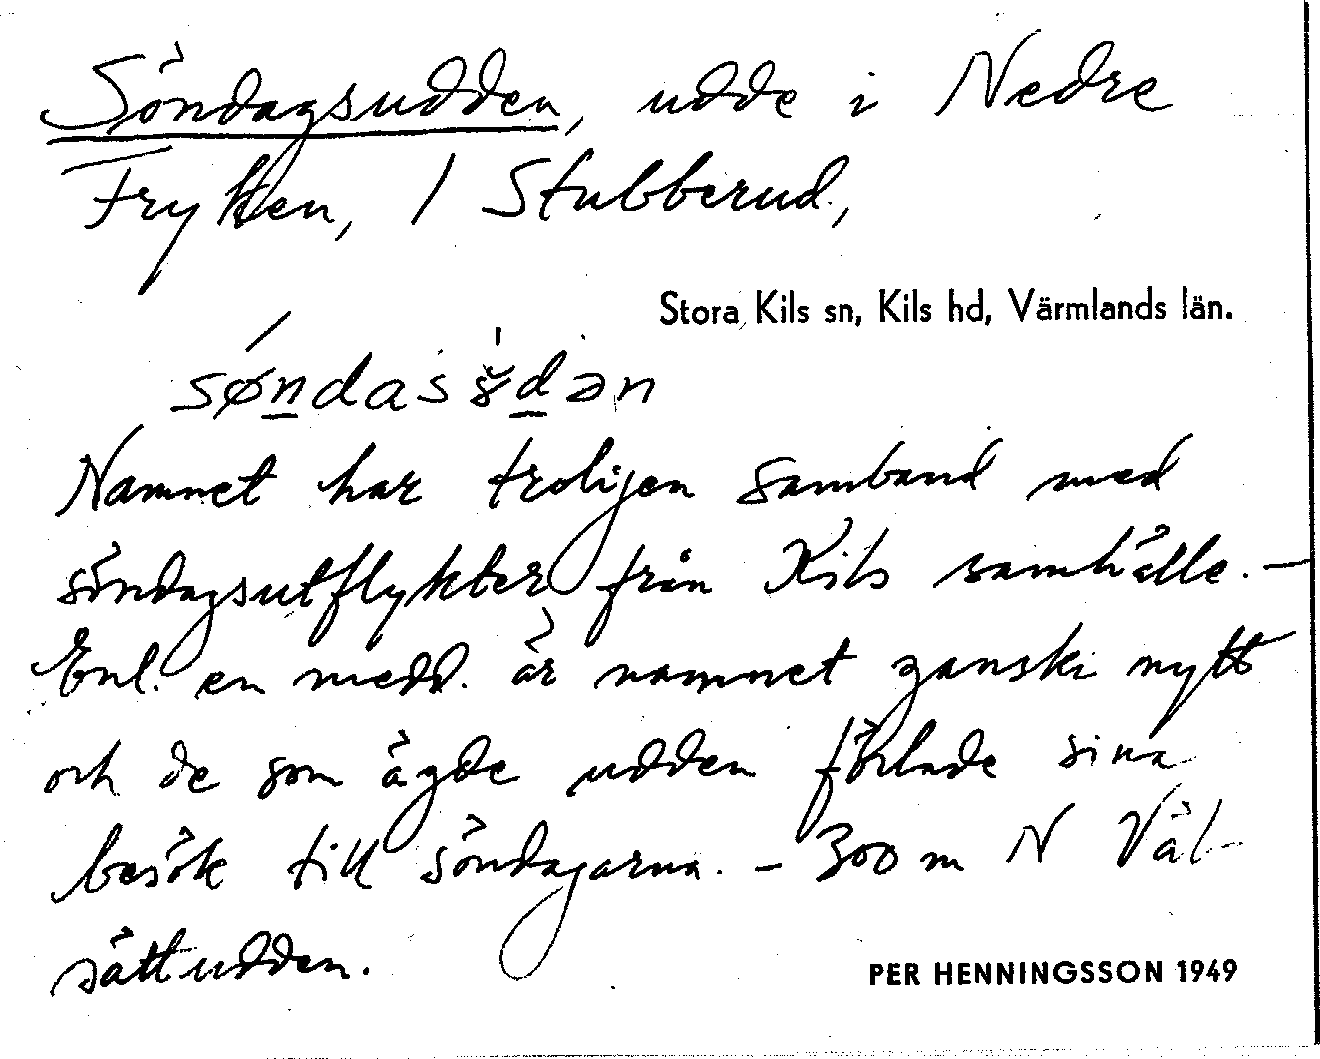 Söndagsudden, udde i Nedre
Fryken, 1 Stubberud,
Stora Kils sn, Kils hd, Värmlands län.
søndasɤ̆dən
Namnet har troligen samband med
söndagsutflykter från Kils samhälle. —
Enl. en medd. är namnet ganska nytt
och de som ägde udden förlade sina
besök till söndagarna. — 300 m N Väl-
sättudden.
PER HENNINGSSON 1949